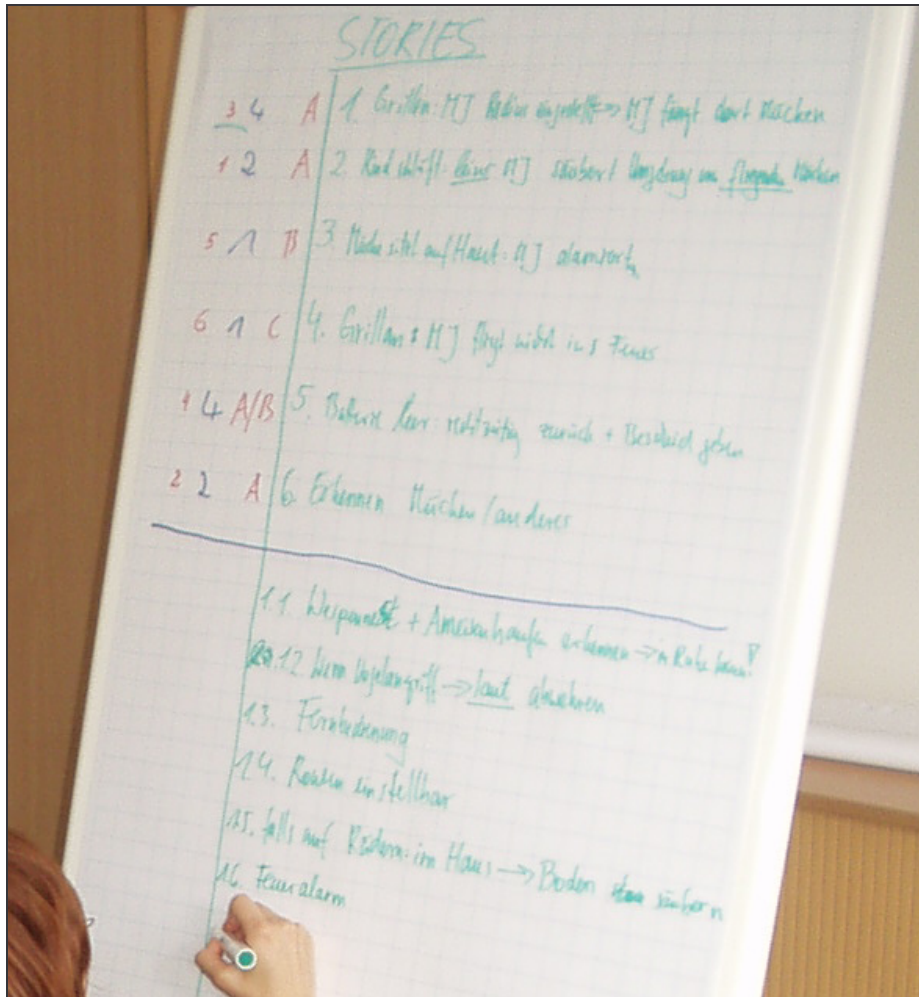 STORIES
3 4 A 1. Grillen: MJ Radius eingestellt → MJ fängt dort Mücken
1 2 A 2. Kind schläft: leiser MJ säubert Umgebung von fliegenden Mücken
5 1 B 3. Mücke sitzt auf Haut: MJ alarmiert
6 1 C 4. Grillen: MJ fliegt nicht ins Feuer
4 A/B 5. Batterie leer: rechtzeitig zurück + Bescheid geben
2 2 A 6. Erkennen Mücken/anderes
11. Wespennest + Ameisenhaufen erkennen → in Ruhe lassen!
12. Wenn Vogelangriff → laut abwehren
13. Fernbedienung
14. Routen einstellbar
15. falls auf Rädern: im Haus → Boden säubern
16. Feueralarm